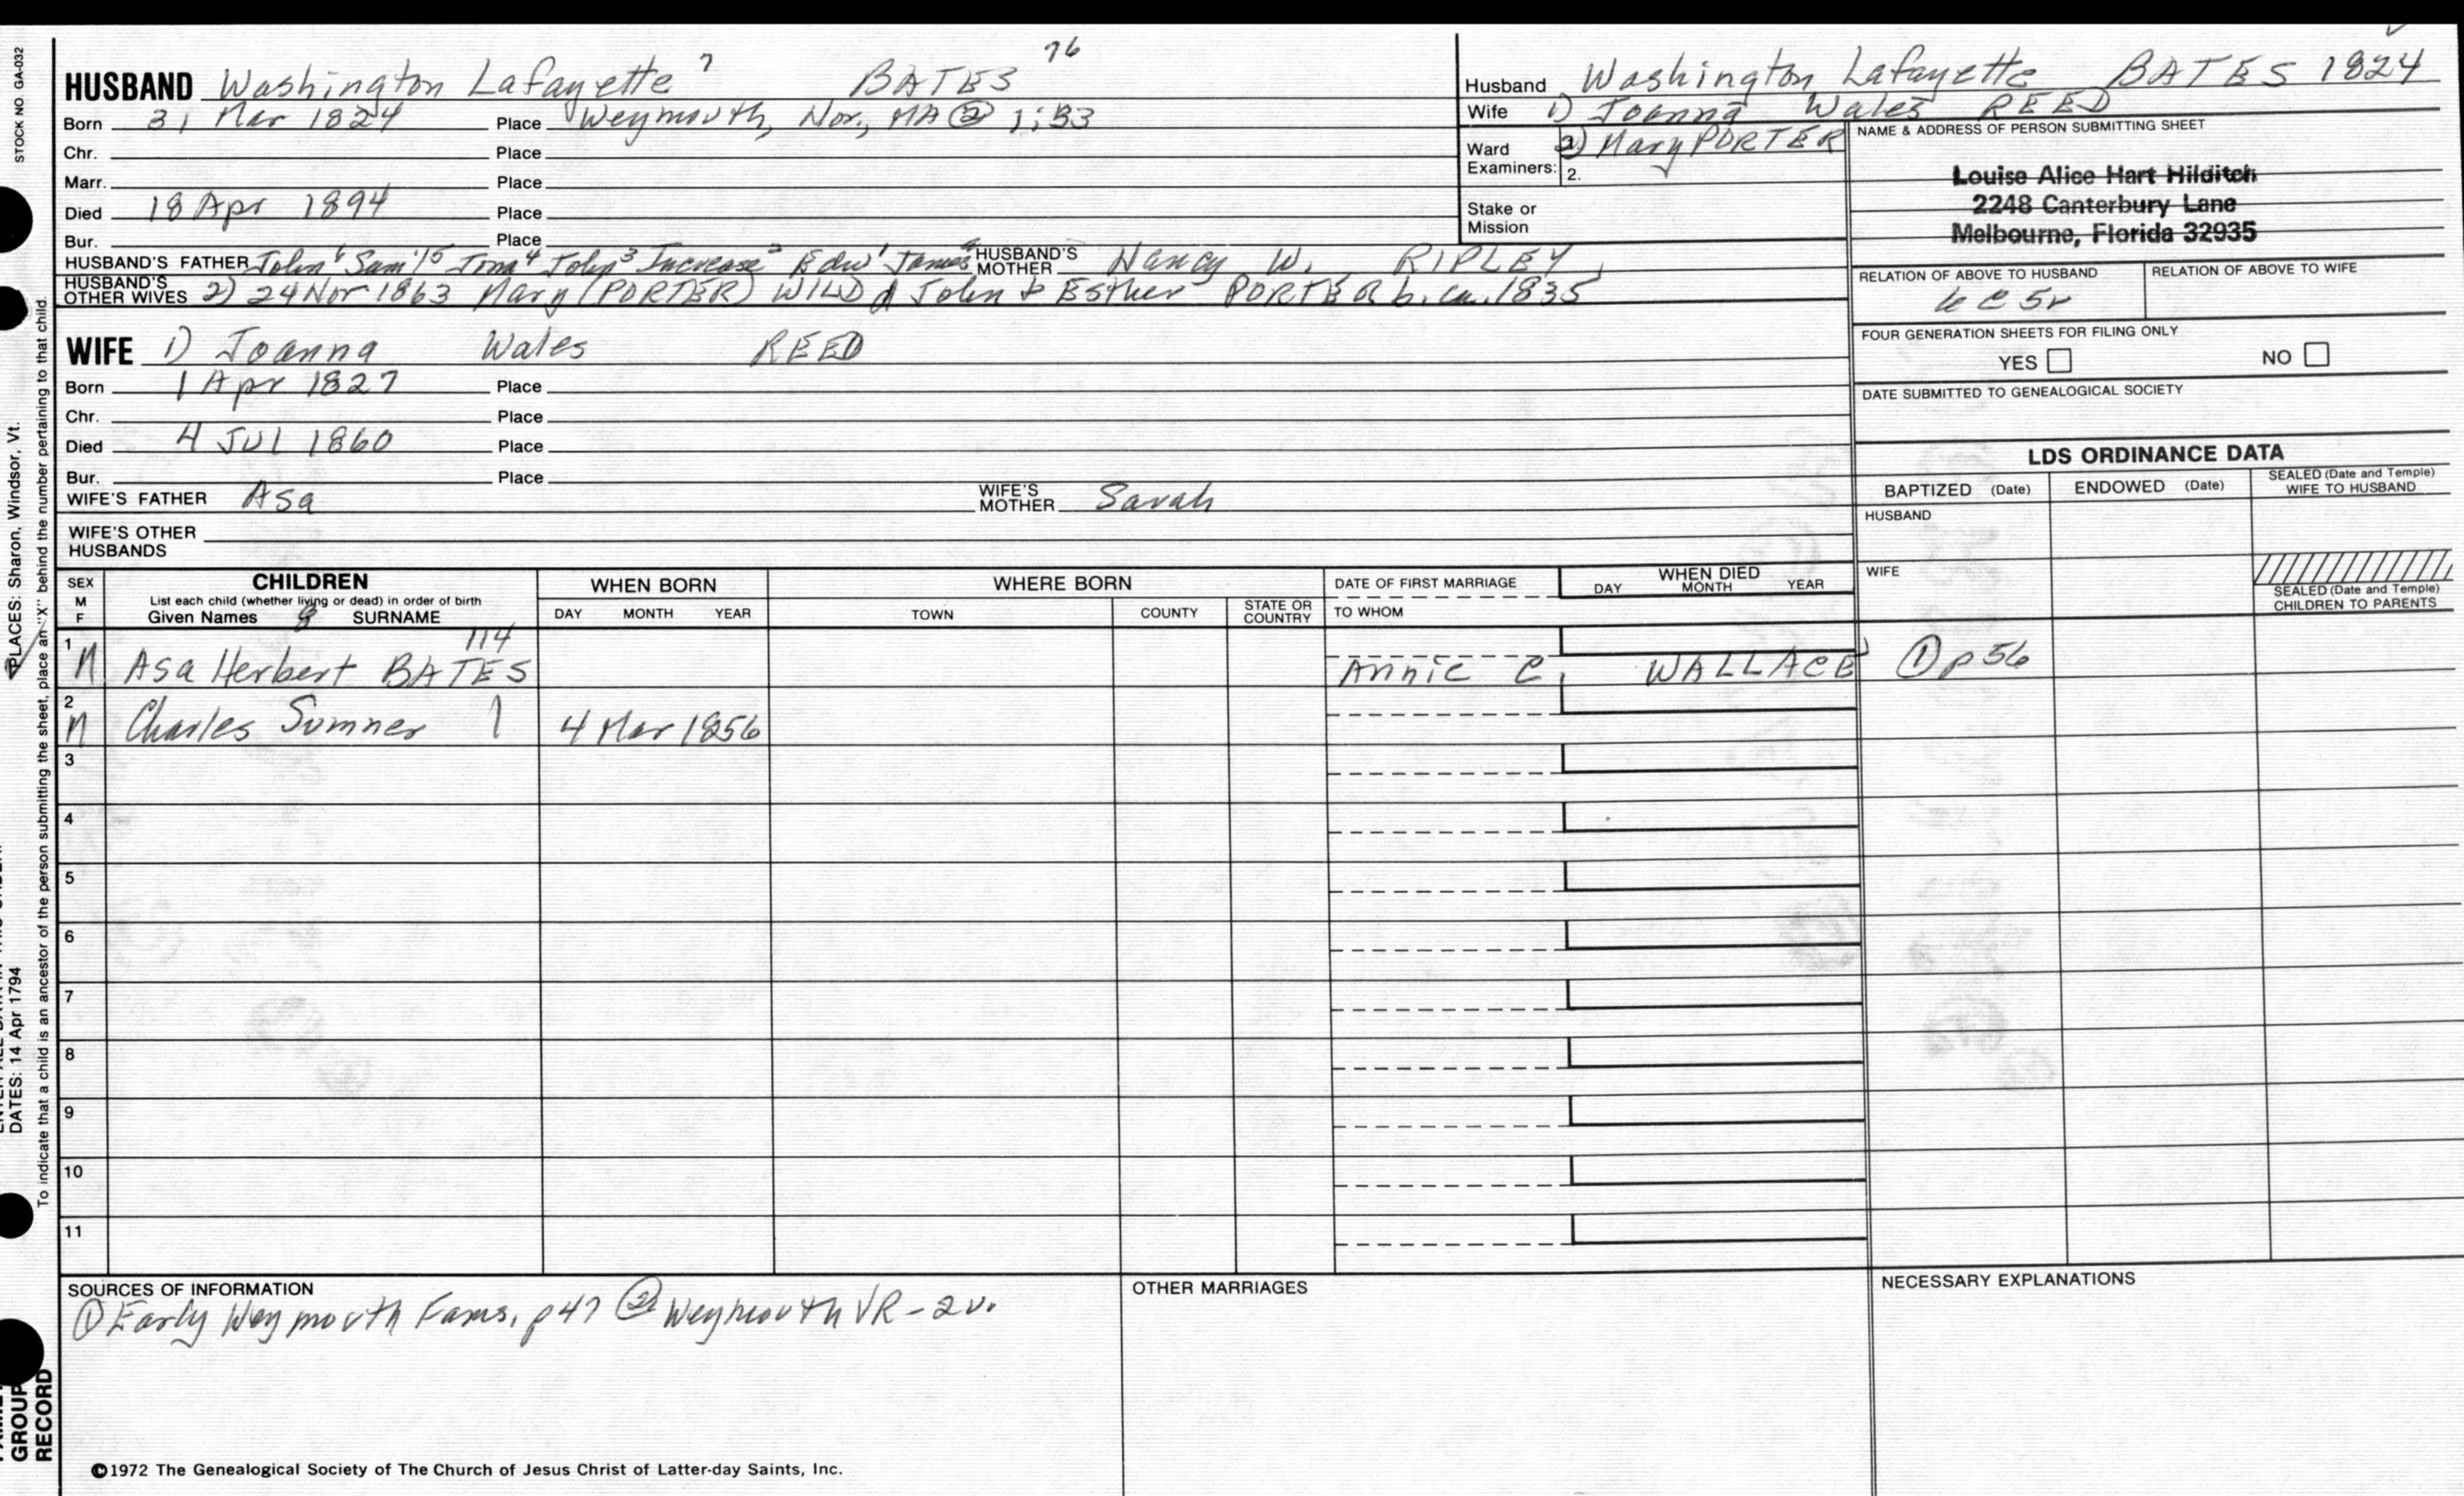 STOCK NO. GA-032
HUSBAND Washington Lafayette 7 BATES 76
Born 31 Mar 1824 Place Weymouth, Nor., MA ② 1:33
Chr. Place
Marr. Place
Died 18 Apr 1894 Place
Bur. Place
HUSBAND'S FATHER John 6 Sam'l 5 Jona 4 John 3 Increase 2 Edw 1 James HUSBAND'S MOTHER Nancy W. RIPLEY
HUSBAND'S OTHER WIVES 2) 24 Nov 1863 Mary (PORTER) WILD d John & Esther PORTER b. ca. 1835
Husband Washington Lafayette BATES 1824
Wife 1) Joanna Wales REED
2) Mary PORTER
Ward Examiners: 1.
2.
Stake or Mission
NAME & ADDRESS OF PERSON SUBMITTING SHEET
Louise Alice Hart Hilditch
2248 Canterbury Lane
Melbourne, Florida 32935
RELATION OF ABOVE TO HUSBAND RELATION OF ABOVE TO WIFE
FOUR GENERATION SHEETS FOR FILING ONLY
YES NO
DATE SUBMITTED TO GENEALOGICAL SOCIETY
WIFE 1) Joanna Wales REED
Born 1 Apr 1827 Place
Chr. Place
Died 4 JUL 1860 Place
Bur. Place
WIFE'S FATHER Asa WIFE'S MOTHER Sarah
WIFE'S OTHER HUSBANDS
LDS ORDINANCE DATA
BAPTIZED (Date) ENDOWED (Date) SEALED (Date and Temple) WIFE TO HUSBAND
HUSBAND
WIFE
SEALED (Date and Temple) CHILDREN TO PARENTS
SEX M F
CHILDREN
List each child (whether living or dead) in order of birth
Given Names 8 SURNAME
WHEN BORN
DAY MONTH YEAR
WHERE BORN
TOWN COUNTY STATE OR COUNTRY
DATE OF FIRST MARRIAGE
TO WHOM
WHEN DIED
DAY MONTH YEAR
1 M Asa Herbert BATES 114 Annie C. WALLACE ① p 56
2 M Charles Sumner 4 Mar 1856
3
4
5
6
7
8
9
10
11
SOURCES OF INFORMATION
① Early Weymouth Fams, p 47 ② Weymouth VR - 2 v.
OTHER MARRIAGES
NECESSARY EXPLANATIONS
©1972 The Genealogical Society of The Church of Jesus Christ of Latter-day Saints, Inc.
PLACES: Sharon, Windsor, Vt.
DATES: 14 Apr 1794
To indicate that a child is an ancestor of the person submitting the sheet, place an "X" behind the number pertaining to that child.
GROUP
RECORD